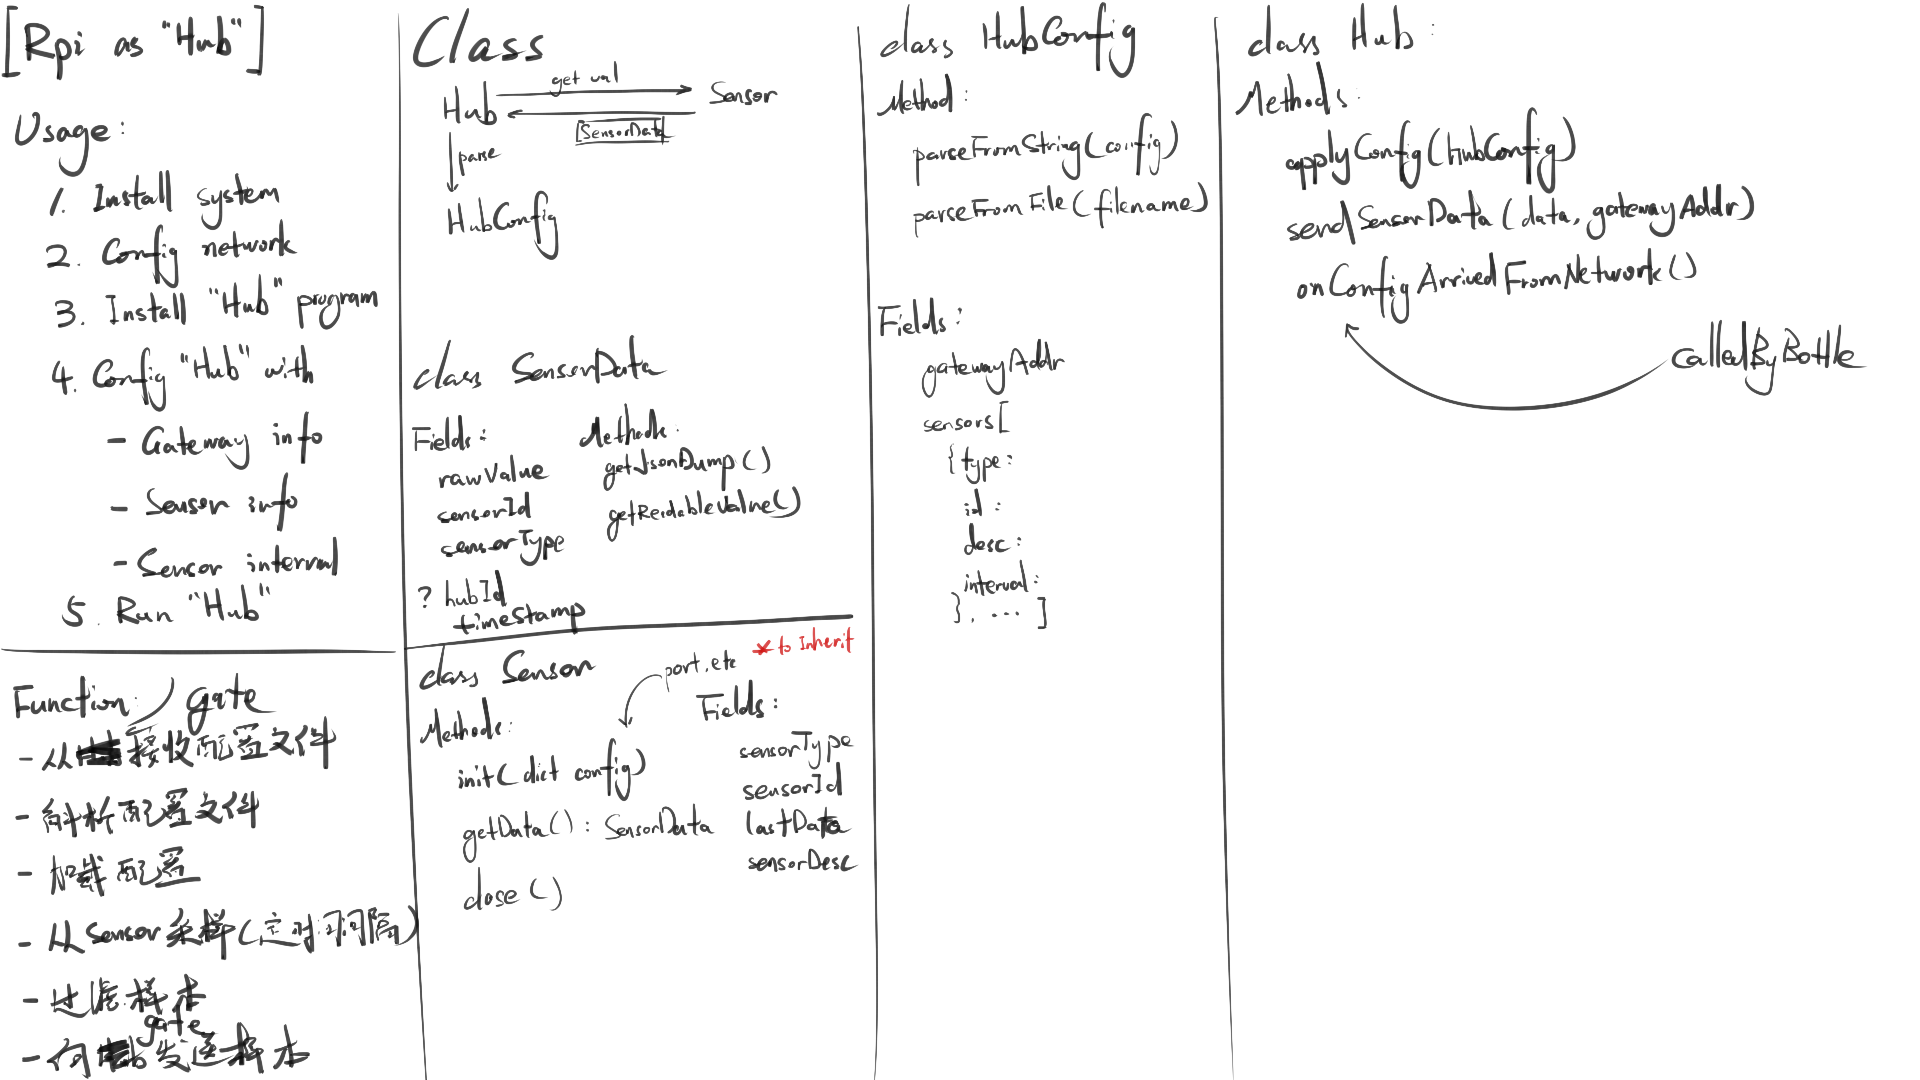 [Rpi as "Hub"]
Usage:
1. Install system
2. Config network
3. Install "Hub" program
4. Config "Hub" with
- Gateway info
- Sensor info
- Sensor interval
5. Run "Hub"
Function:
gate
- 从接收配置文件
- 解析配置文件
- 加载配置
- 从Sensor采样(定时间隔)
- 过滤样本
gate
- 向发送样本
Class
Hub
get val
Sensor
[SensorData]
parse
HubConfig
class SensorData
Fields:
rawValue
sensorId
sensorType
? hubId
timeStamp
Methods:
getJsonDump()
getReadableValue()
class Sensor
* to Inherit
port.etc
Methods:
init(dict config)
getData(): SensorData
close()
Fields:
sensorType
sensorId
lastData
sensorDesc
class HubConfig
Method:
parseFromString(config)
parseFromFile(filename)
Fields:
gatewayAddr
sensors[
{type:
id:
desc:
interval:
}, ... ]
class Hub:
Methods:
applyConfig(HubConfig)
sendSensorData(data, gatewayAddr)
onConfigArrivedFromNetwork()
calledByBottle